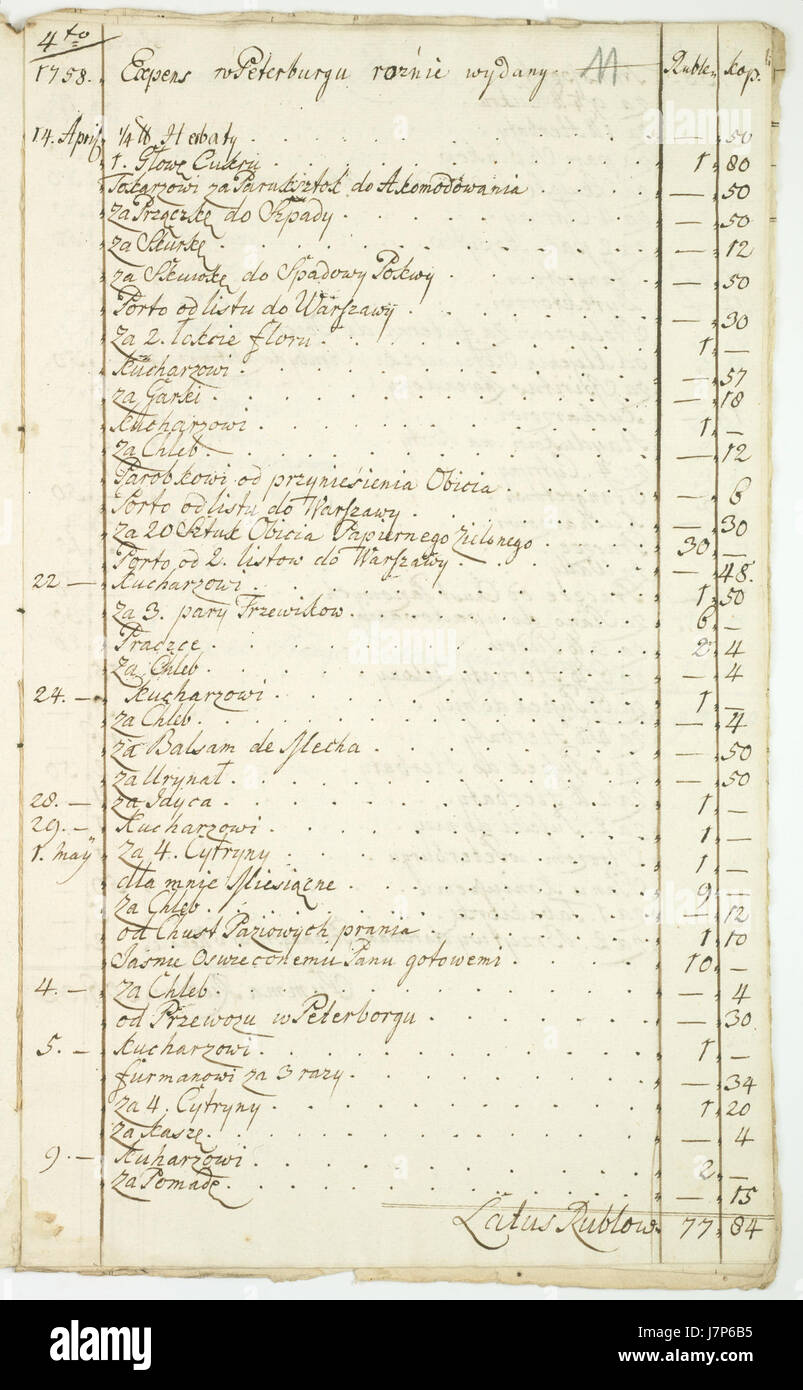 4to
1758. Expens w Peterburgu roźnie wydany Ruble kop.
14. April ¼ ℔ Herbaty — 50
1. Głowę Cukru 1 80
Tokarzowi za Paruksztok do Akomodowania — 50
za Prżączkę do Szpady — 50
za Skurkę — 12
za do Spadowy Pokwy — 50
Porto od listu do Warszawÿ — 30
za 2. łokcie floru 1 —
Kucharzowi — 57
za Garki — 18
Kucharzowi 1 —
za Chleb — 12
Parobkowi od przyniesienia Obicia — 6
Porto od listu do Warszawy — 30
za 20 Sztuk Obicia Papiernego zielonego 30 —
Porto od 2. listow do Warszawy — 48.
22 — Kucharzowi 1 50
za 3. pary Trzewikow 6 —
Praczce 2 4
za Chleb — 4
24. — Kucharzowi 1 —
za Chleb — 4
za Balsam de Mecha — 50
za Urynał — 50
28. — za Jayca 1 —
29. — Kucharzowi 1 —
1. maÿ za 4. Cytryny 1 —
dla mnie Miesiączne 9 —
za Chleb — 12
od Chust Paziowych prania 1 10
Jaśnie Oswieconemu Panu gotowemi 10 —
4. — za Chleb — 4
od Przewozu w Peterborgu — 30
5. — Kucharzowi 1 —
furmanowi za 3 razy — 34
za 4. Cytryny 1 20
za Kaszę — 4
9. — Kuharzowi 2 —
za Pomadę — 15
Latus Rublow 77 84
alamy
alamy
alamy
Image ID: J7P6B5
www.alamy.com